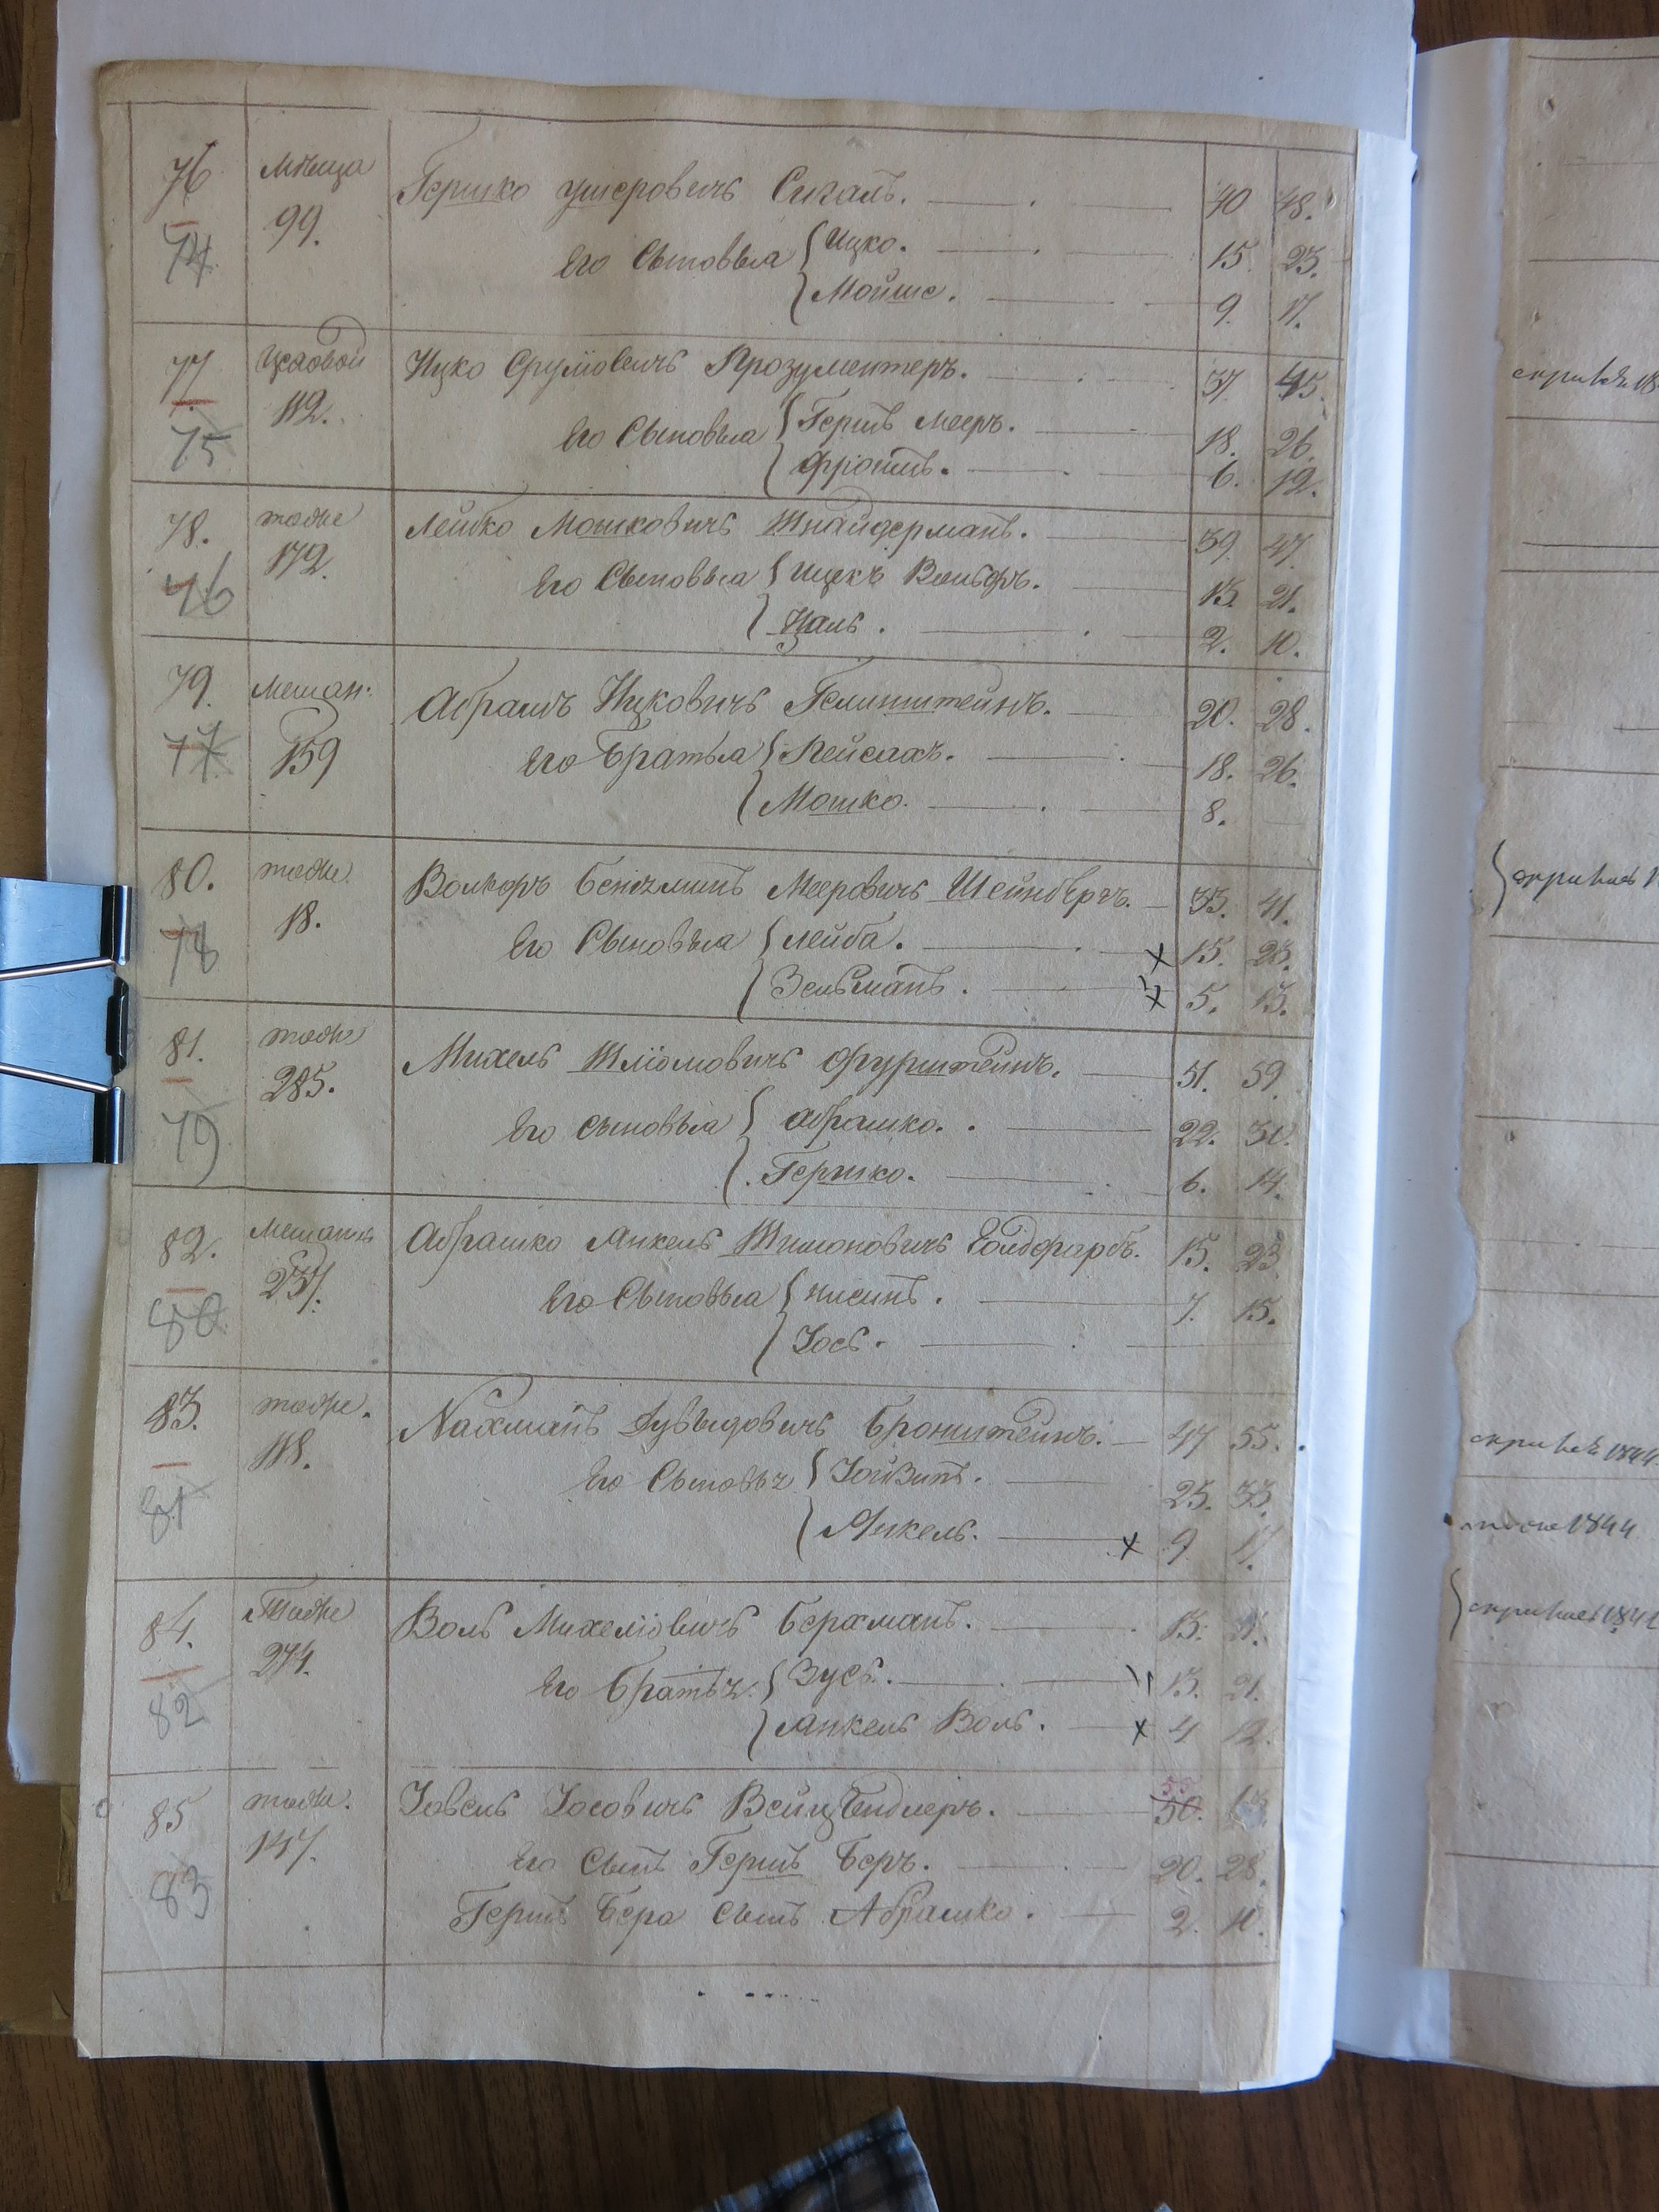 76 Мѣща Гершко Ушеровичъ Сигалъ. 40 48.
74 99. Его Сыновья { Ицко. 15. 23.
Мойше. 9. 17.
77 Цеховой Ицко Сруліовичъ Прозументеръ. 37. 45.
75 112. Его Сыновья { Гершъ Мееръ. 18. 26.
Фроимъ. 6. 12.
78. тоже Лейбко Мошковичъ Шнайдерманъ. 39. 47.
76 172. Его Сыновья { Ицекъ Вольфъ. 13. 21.
Цаль. 2. 10.
79. Мещан: Абрамъ Ицковичъ Гелиштейнъ. 20. 28.
77 159 Его Братья { Пейсахъ. 18. 26.
Мошко. 8.
80. тоже Волфъ Бенземинъ Мееровичъ Шейнбергъ. 33. 41.
78 18. Его Сыновья { Лейба. х 15. 23.
Зельманъ. х 5. 13.
81. тоже Михель Шліомовичъ Фурштейнъ. 51. 59
79 285. Его Сыновья { Абрашко. 22. 30.
Гершко. 6. 14.
82. Мещанъ Абрашко Янкель Шимоновичъ Голдфарбъ. 15. 23
80 237. Его Сыновья { Нисинъ. 7. 15.
Іось.
83. тоже. Нахманъ Дувыдовичъ Бронштейнъ. 47 55.
81 118. Его Сыновья { Іойзипъ. 25. 33.
Янкель. х 9 17.
84. Тоже Воль Михеліовичъ Бергманъ. 13. 21.
82 274. Его Братья { Зусь. 13. 21.
Янкель Воль. х 4 12.
85 тоже. Іовель Іосовичъ Вейцбендлеръ. 55 50. 63.
83 147. Его Сынъ Гершъ Беръ. 20. 28.
Гершъ Бера Сынъ Абрашко. 2. 10.
тоже 1844